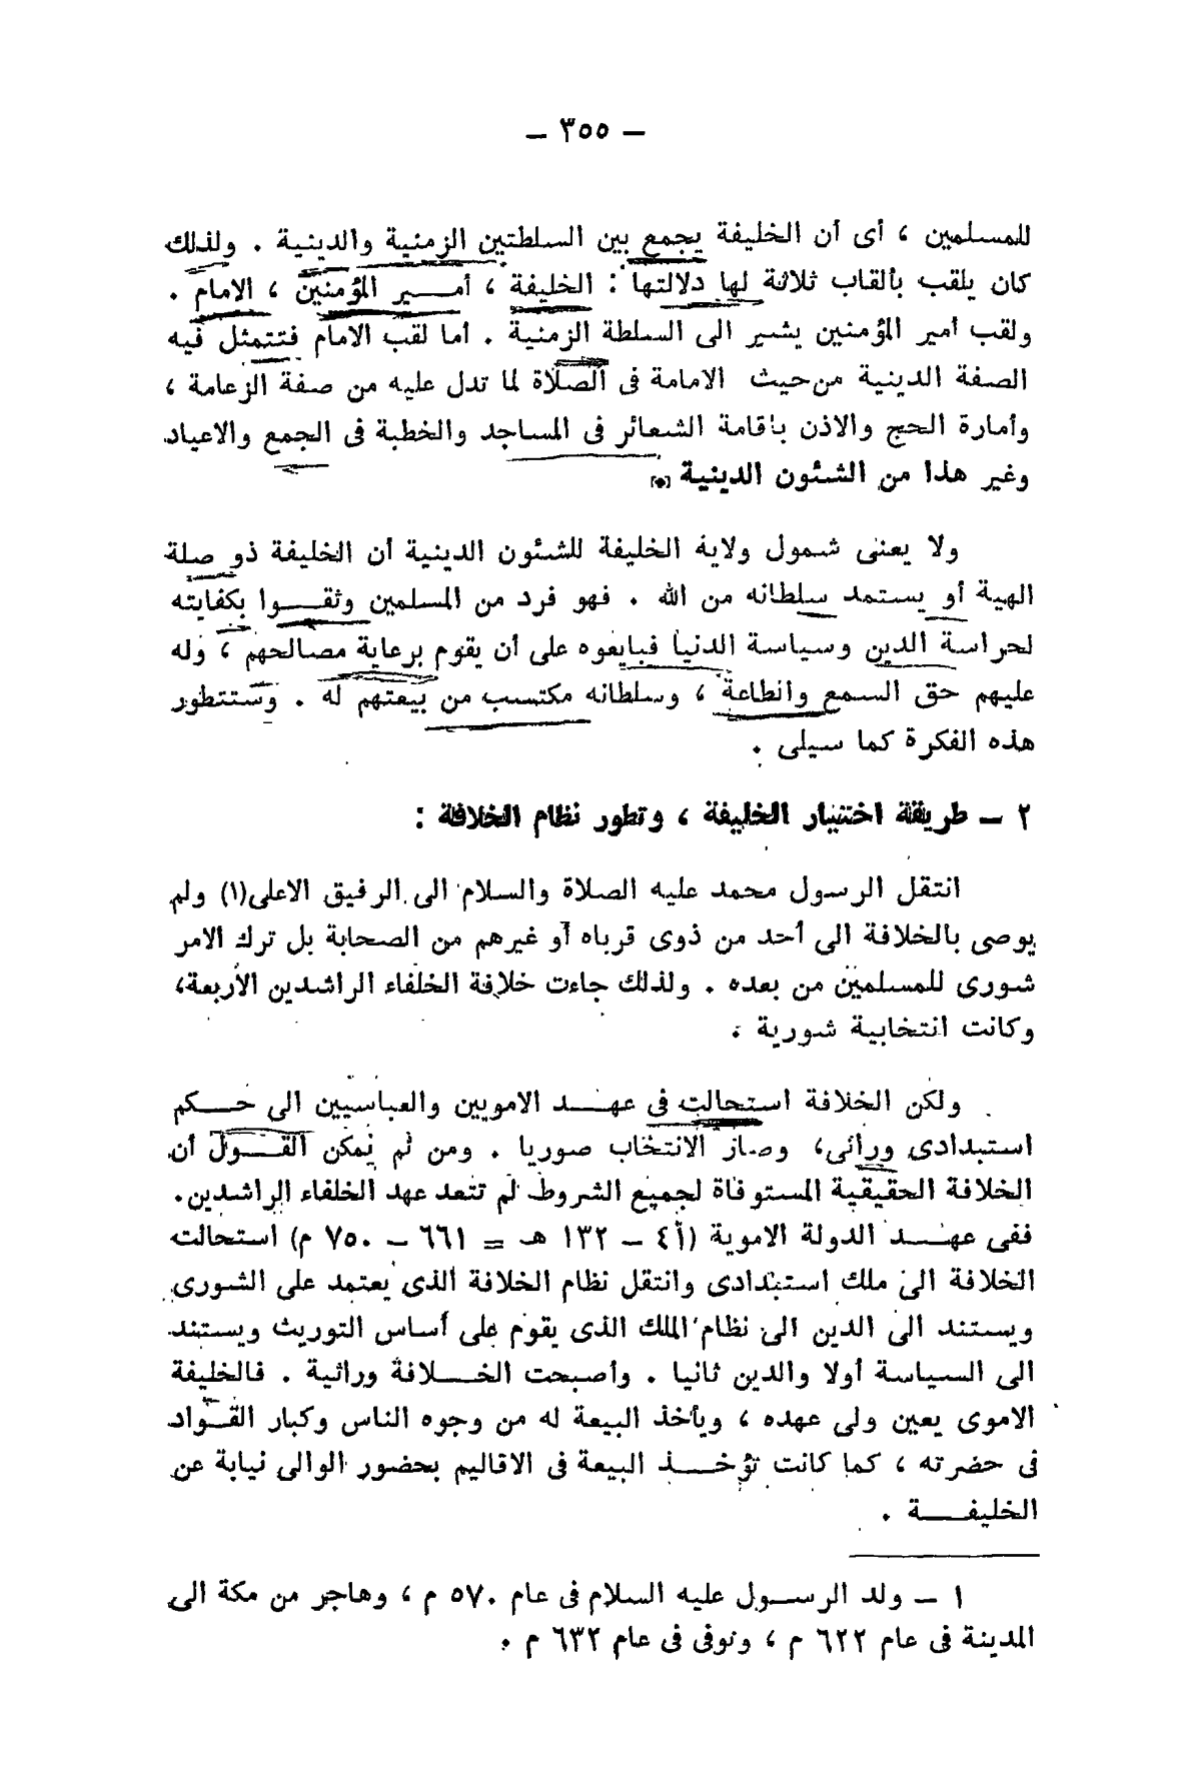 – ٣٥٥ –
للمسلمين ، أى أن الخليفة يجمع بين السلطتين الزمنية والدينية . ولذلك
كان يلقب بألقاب ثلاثة لها دلالتها : الخليفة ، أمـــير المؤمنين ، الامام .
ولقب أمير المؤمنين يشير الى السلطة الزمنية . أما لقب الامام فتتمثل فيه
الصفة الدينية من حيث الامامة فى الصلاة لما تدل عليه من صفة الزعامة ،
وأمارة الحج والاذن بأقامة الشعائر فى المساجد والخطبة فى الجمع والاعياد
وغير هذا من الشئون الدينية
ولا يعنى شمول ولاية الخليفة للشئون الدينية أن الخليفة ذو صلة
الهية أو يستمد سلطانه من الله . فهو فرد من المسلمين وثقـــوا بكفايته
لحراسة الدين وسياسة الدنيا فبايعوه على أن يقوم برعاية مصالحهم ، وله
عليهم حق السمع والطاعة ، وسلطانه مكتسب من بيعتهم له . وستتطور
هذه الفكرة كما سيلى .
٢ – طريقة اختيار الخليفة ، وتطور نظام الخلافة :
انتقل الرسول محمد عليه الصلاة والسلام الى الرفيق الاعلى(١) ولم
يوصى بالخلافة الى أحد من ذوى قرباه أو غيرهم من الصحابة بل ترك الامر
شورى للمسلمين من بعده . ولذلك جاءت خلافة الخلفاء الراشدين الأربعة،
وكانت انتخابية شورية .
ولكن الخلافة استحالت فى عهـــد الامويين والعباسيين الى حـــكم
استبدادى وراثى، وصار الانتخاب صوريا . ومن ثم يمكن القـــول أن
الخلافة الحقيقية المستوفاة لجميع الشروط لم تتعد عهد الخلفاء الراشدين.
ففى عهـــد الدولة الاموية (٤١ – ١٣٢ هـ = ٦٦١ – ٧٥٠ م) استحالت
الخلافة الى ملك استبدادى وانتقل نظام الخلافة الذى يعتمد على الشورى
ويستند الى الدين الى نظام الملك الذى يقوم على أساس التوريث ويستند
الى السياسة أولا والدين ثانيا . وأصبحت الخـــلافة وراثية . فالخليفة
الاموى يعين ولى عهده ، ويأخذ البيعة له من وجوه الناس وكبار القـــواد
فى حضرته ، كما كانت تؤخـــذ البيعة فى الاقاليم بحضور الوالى نيابة عن
الخليفـــة .
١ – ولد الرســول عليه السلام فى عام ٥٧٠ م ، وهاجر من مكة الى
المدينة فى عام ٦٢٢ م ، وتوفى فى عام ٦٣٢ م .